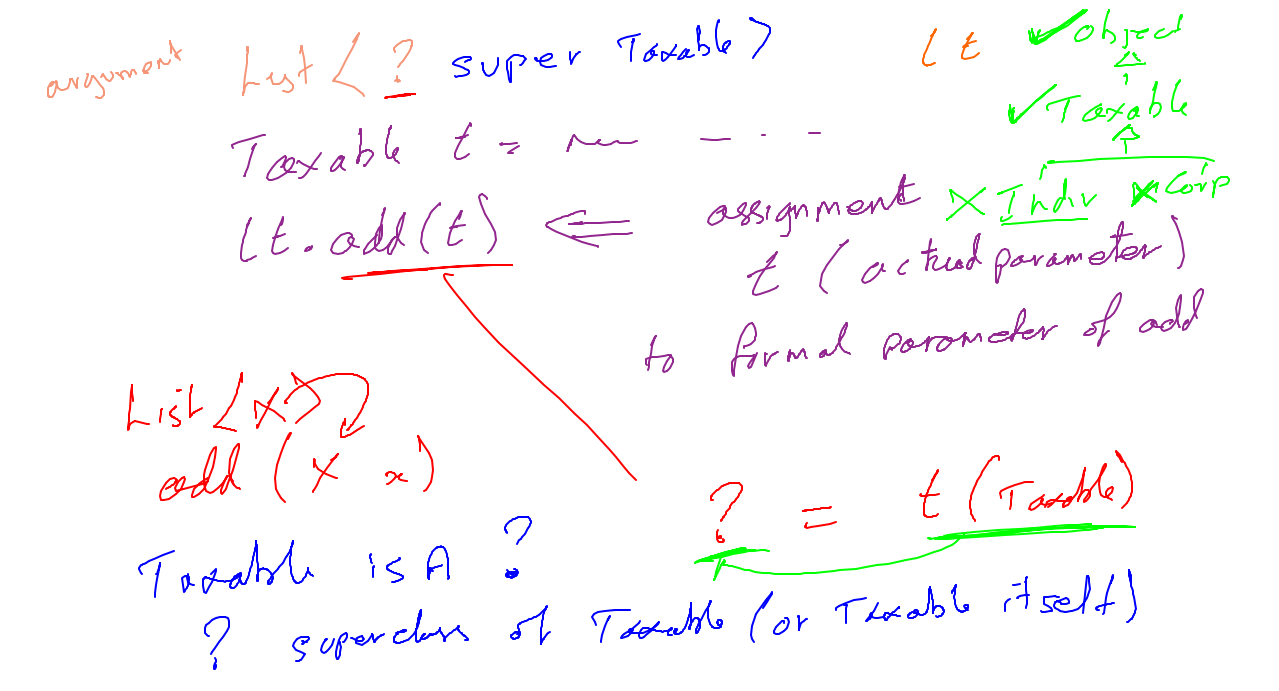 argument List < ? super Taxable > lt ✓ Object
✓ Taxable
Taxable t = — - · · -
× Indiv × Corp
lt.add(t) ⇐ assignment
t (actual parameter)
to formal parameter of add
List <X>
add (X x)
? = t (Taxable)
Taxable isA ?
? superclass of Taxable (or Taxable itself)